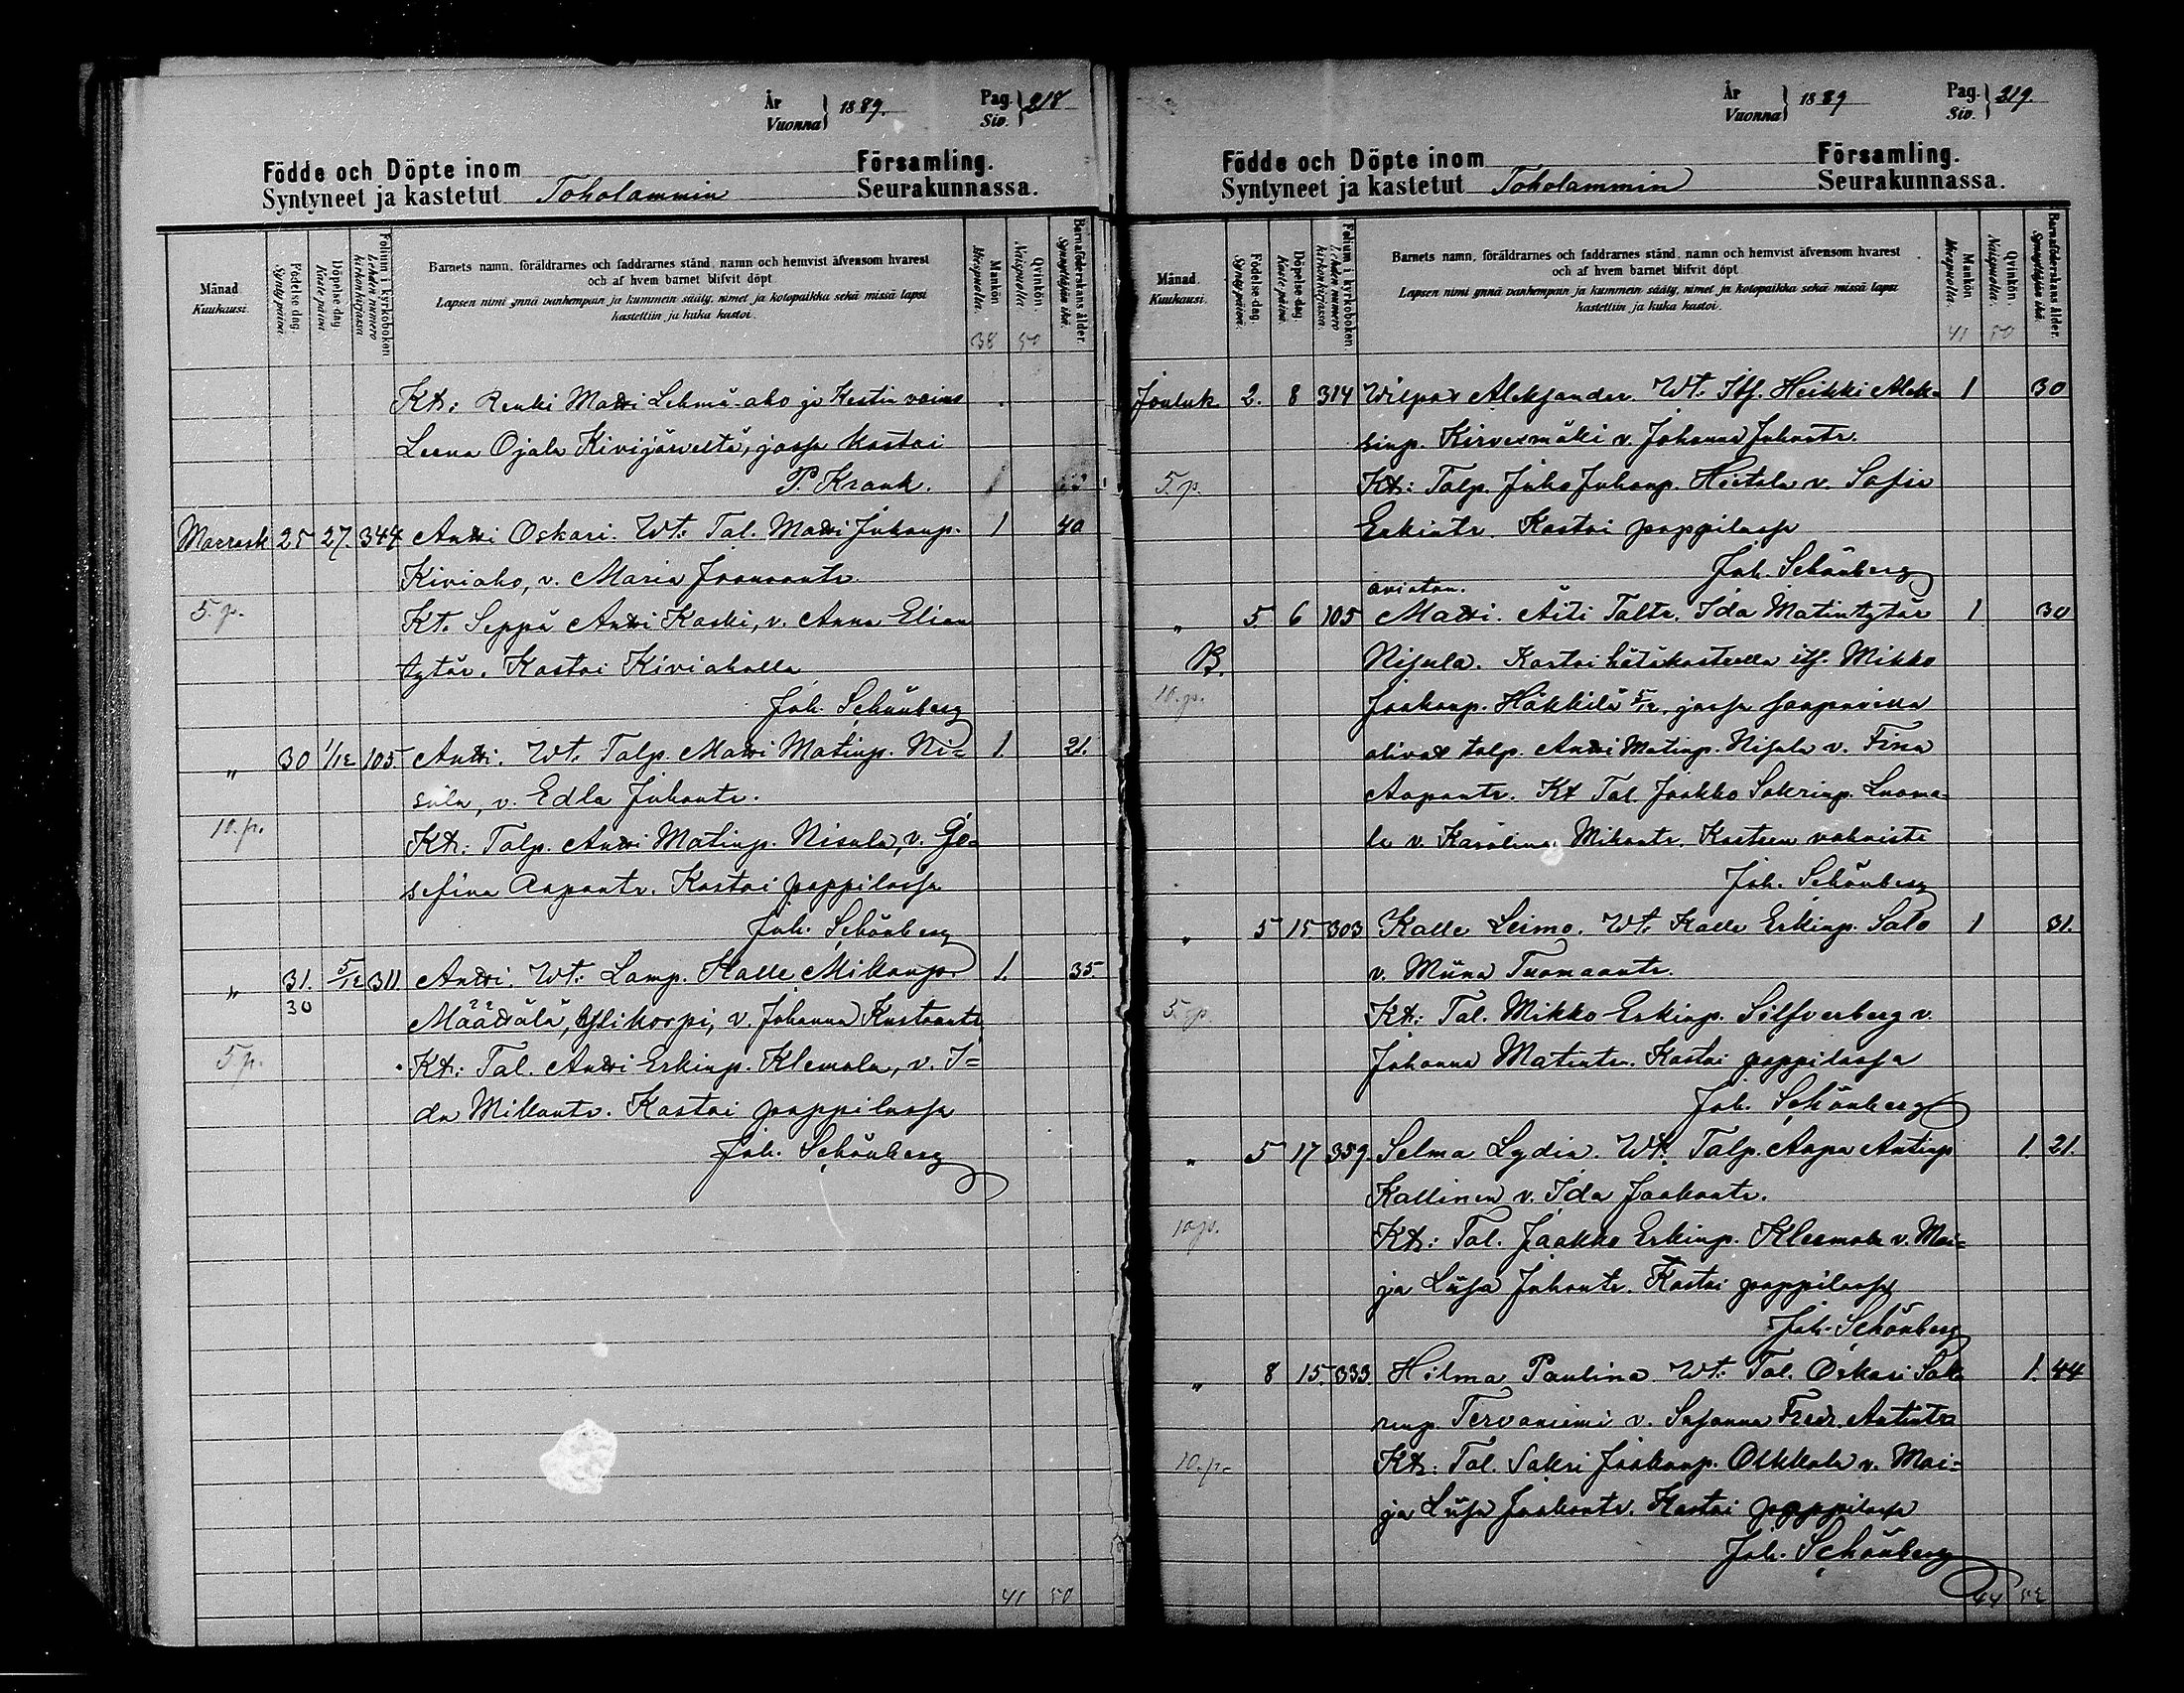 År
Vuonna } 1889.
Pag.
Siv. } 218
Födde och Döpte inom Församling.
Syntyneet ja kastetut Toholammin Seurakunnassa.
Månad
Kuukausi.
Födelse-dag.
Synty päivä.
Döpelse-dag
Kaste päivä
Folium i kyrkoboken
Lehden numero kirkonkirjassa
Barnets namn, föräldrarnes och faddrarnes stånd, namn och hemvist äfvensom hvarest
och af hvem barnet blifvit döpt
Lapsen nimi ynnä vanhempain ja kummein sääty, nimet ja kotopaikka sekä missä lapsi
kastettiin ja kuka kastoi.
Mankön
Miespuolia.
Qvinkön.
Naispuolia.
Barnaföderskans ålder.
Synnyttäjän ikä.
38 50
Kt: Renki Matti Lehmä-aho ja Kestin vaimo
Leena Ojala Kivijärveltä, jossa kastoi
P. Krank.
Marrask 25 27. 344 Antti Oskari. Wt: Tal. Matti Juhonp. 1 40
Kiviaho, v. Maria Joonaantr.
5. p. Kt. Seppä Antti Kaski, v. Anna Elian
tytär. Kastoi Kiviaholla
Joh. Schönberg
„ 30 1/12 105. Antti. Wt. Talp. Matti Matinp. Ni= 1. 21.
sula, v. Edla Juhontr.
10. p. Kt: Talp. Antti Matinp. Nisula, v. Jo=
sefina Aapontr. Kastoi pappilassa
Joh. Schönberg
„ 31. 5/12 311. Antti. Wt: Lamp. Kalle Mikonp. 1. 35.
30 Määttälä, Ylikorpi, v. Johanna Kustaantr
5 p. Kt: Tal. Antti Erkinp. Klemola, v. I=
da Mikontr. Kastoi pappilassa
Joh. Schönberg
41 50
År
Vuonna } 1889
Pag.
Siv. } 219.
Födde och Döpte inom Församling.
Syntyneet ja kastetut Toholammin Seurakunnassa.
Månad.
Kuukausi.
Födelse-dag.
Synty päivä.
Döpelse-dag.
Kaste päivä.
Folium i kyrkoboken.
Lehden numero kirkonkirjassa.
Barnets namn, föräldrarnes och faddrarnes stånd, namn och hemvist äfvensom hvarest
och af hvem barnet blifvit döpt
Lapsen nimi ynnä vanhempain ja kummein sääty, nimet ja kotopaikka sekä missä lapsi
kastettiin ja kuka kastoi.
Mankön
Miespuolia.
Qvinkön.
Naispuolia.
Barnaföderskans ålder.
Synnyttäjän ikä.
41 50
Jouluk. 2. 8 314 Wilpat Aleksander. Wt: Its. Heikki Alek= 1 30
sinp. Kirvesmäki v. Johanna Juhontr.
5. p. Kt: Talp. Juho Juhonp. Hietala v. Sofia
Erkintr. Kastoi pappilassa
Joh. Schönberg
avioton.
„ 5. 6 105 Matti. Äiti Taltr. Ida Matintytär 1 30
B. Nisula. Kastoi hätäkasteella its. Mikko
10. p. Jaakonp. Häkkilä 5/12, jossa saapuvilla
olivat talp. Antti Matinp. Nisula v. Fina
Aapontr. Kt Tal. Jaakko Sakrinp. Luoma=
la v. Karolina Mikontr. Kasteen vahvisti
Joh. Schönberg
„ 5 15. 303 Kalle Leimo. Wt: Kalle Erkinp. Salo 1 31.
v. Miina Tuomaantr.
5. p. Kt: Tal. Mikko Erkinp. Silfverberg v.
Johanna Matintr. Kastoi pappilassa
Joh. Schönberg
„ 5 17 359. Selma Lydia. Wt: Talp. Aapo Antinp 1. 21.
Kallinen v. Ida Jaakontr.
10 p. Kt: Tal. Jaakko Erkinp. Kleemola v. Mai=
ja Liisa Juhontr. Kastoi pappilassa
Joh. Schönberg
„ 8 15. 333. Hilma Paulina. Wt: Tal. Oskari Sak= 1. 44
rinp. Tervaniemi v. Sofanna Fredr. Antintr
10. p. Kt: Tal. Sakri Jaakonp. Olkkola v. Mai=
ja Liisa Jaakontr. Kastoi pappilassa
Joh. Schönberg
44 52